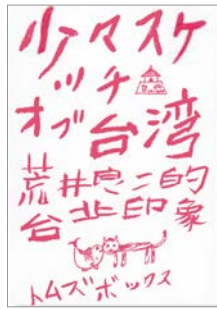 少々スケ
ッチ
オブ台湾
荒井良二的
台北印象
トムズボックス